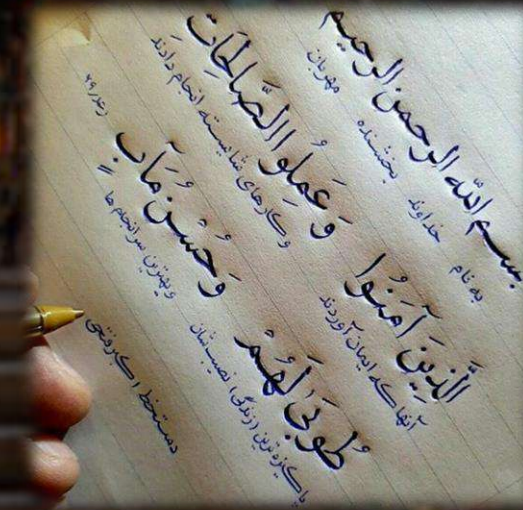 بسم الله الرحمن الرحیم
به نام خداوند بخشنده مهربان
الَّذِینَ آمَنُوا وَعَمِلُوا الصَّالِحَاتِ
آنها که ایمان آوردند و کارهای شایسته انجام دادند
طُوبَیٰ لَهُمْ وَحُسْنُ مَآبٍ
پاکیزه‌ترین (زندگی) نصیبشان و بهترین سرانجام‌ها
رعد، ۲۹
دستخط: اکبر فتحی